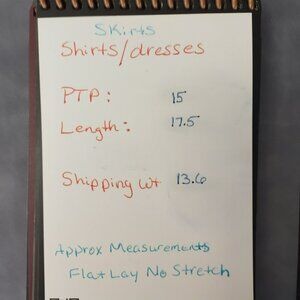 SKirts
Shirts/dresses
PTP: 15
Length: 17.5
Shipping wt 13.6
Approx Measurements
Flat Lay No Stretch